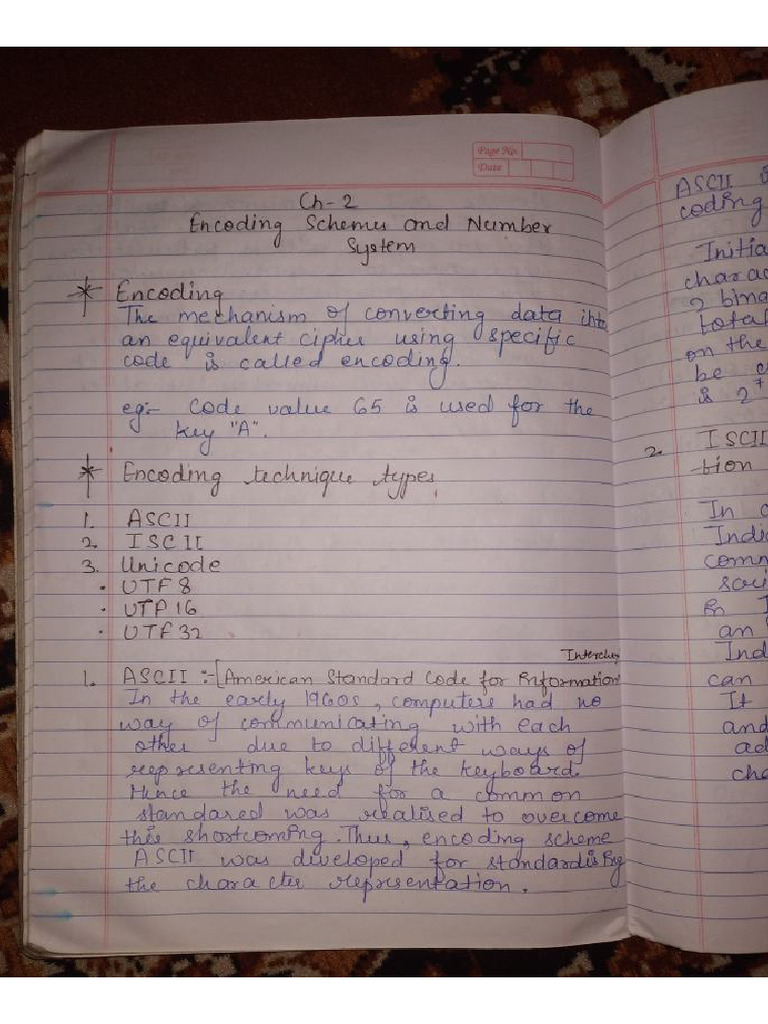 Page No.
Date
Ch-2
Encoding Schemes and Number
System
* Encoding
The mechanism of converting data into
an equivalent cipher using specific
code is called encoding.
eg:- Code value 65 is used for the
key "A".
* Encoding technique types
1. ASCII
2. ISCII
3. Unicode
• UTF 8
• UTF 16
• UTF 32
Interchng
1. ASCII :- [American Standard Code for Information
In the early 1960s, computers had no
way of communicating with each
other due to different ways of
representing keys of the keyboard.
Hence the need for a common
standared was realised to overcome
this shortcoming. Thus, encoding scheme
ASCII was developed for standardising
the character representation.
ASCII
coding
Initia
charac
7 bina
total
on the
be c
is 2⁷
2. ISCII
-tion
In
India
comm
scri
in I
an
Ind
can
It
and
ad
cha